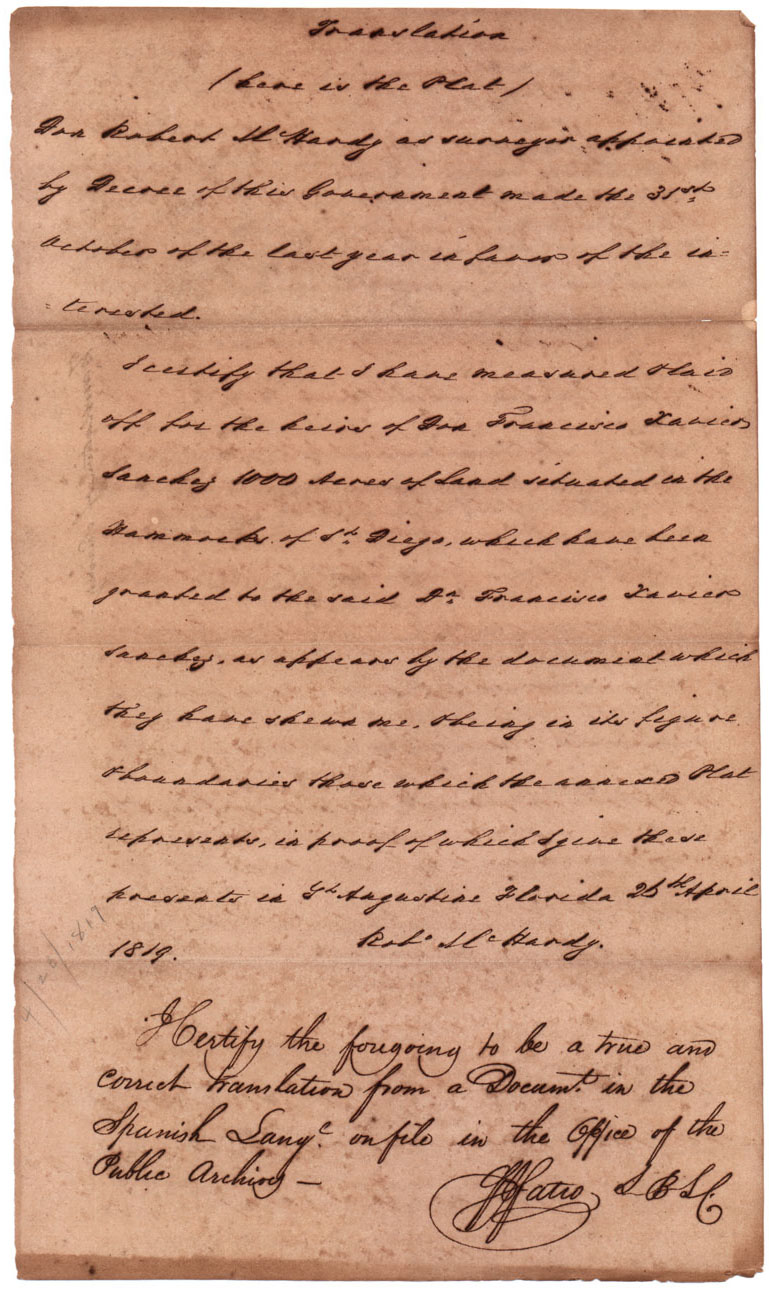 Translation
(here is the Plat)
Don Robert McHardy as surveyor appointed
by Decree of this Government made the 31st
October of the last year in favor of the in-
-terested.
I certify that I have measured & laid
off for the heirs of Don Francisco Xavier
Sanchez 1000 Acres of Land situated in the
Hammocks of St. Diego, which have been
granted to the said Dn. Francisco Xavier
Sanchez, as appears by the document which
they have shewn me, & being in its figure
& boundaries those which the annexed Plat
represents, in proof of which I give these
presents in St. Augustine Florida 26th April
1819. Robt. McHardy.
4/26/1819
I Certify the foregoing to be a true and
correct translation from a Documt. in the
Spanish Lange. on file in the Office of the
Public Archives —
F J Fatio, S B L C.